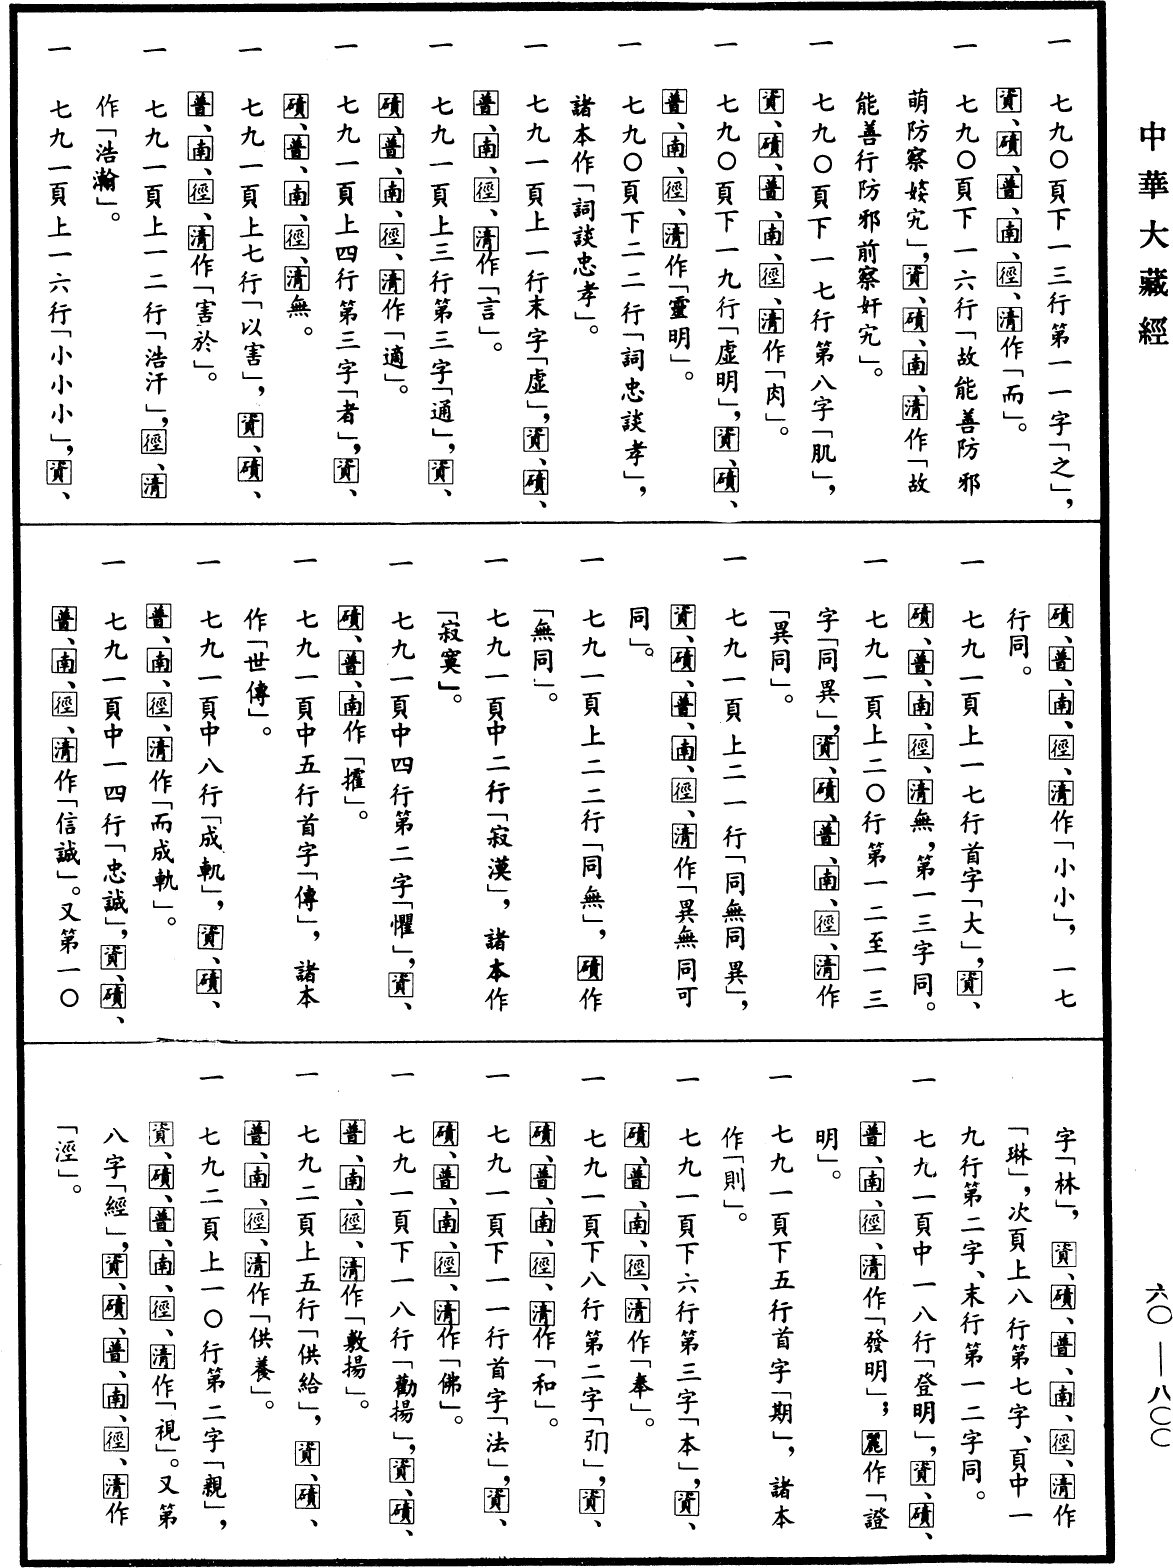 中華大藏經
六〇—八〇〇
一　七九〇頁下一三行第一一字「之」，
資、磧、普、南、徑、清作「而」。
一　七九〇頁下一六行「故能善防邪
萌防察姟宄」，資、磧、南、清作「故
能善行防邪前察奸宄」。
一　七九〇頁下一七行第八字「肌」，
資、磧、普、南、徑、清作「肉」。
一　七九〇頁下一九行「虛明」，資、磧、
普、南、徑、清作「靈明」。
一　七九〇頁下二二行「詞忠談孝」，
諸本作「詞談忠孝」。
一　七九一頁上一行末字「虛」，資、磧、
普、南、徑、清作「言」。
一　七九一頁上三行第三字「通」，資、
磧、普、南、徑、清作「適」。
一　七九一頁上四行第三字「者」，資、
磧、普、南、徑、清無。
一　七九一頁上七行「以害」，資、磧、
普、南、徑、清作「害於」。
一　七九一頁上一二行「浩汗」，徑、清
作「浩瀚」。
一　七九一頁上一六行「小小小」，資、
磧、普、南、徑、清作「小小」，一七
行同。
一　七九一頁上一七行首字「大」，資、
磧、普、南、徑、清無，第一三字同。
一　七九一頁上二〇行第一二至一三
字「同異」，資、磧、普、南、徑、清作
「異同」。
一　七九一頁上二一行「同無同異」，
資、磧、普、南、徑、清作「異無同可
同」。
一　七九一頁上二二行「同無」，磧作
「無同」。
一　七九一頁中二行「寂漠」，諸本作
「寂寞」。
一　七九一頁中四行第二字「懼」，資、
磧、普、南作「擢」。
一　七九一頁中五行首字「傳」，諸本
作「世傳」。
一　七九一頁中八行「成軌」，資、磧、
普、南、徑、清作「而成軌」。
一　七九一頁中一四行「忠誠」，資、磧、
普、南、徑、清作「信誠」。又第一〇
字「林」，資、磧、普、南、徑、清作
「琳」，次頁上八行第七字、頁中一
九行第二字、末行第一二字同。
一　七九一頁中一八行「登明」，資、磧、
普、南、徑、清作「發明」；麗作「證
明」。
一　七九一頁下五行首字「期」，諸本
作「則」。
一　七九一頁下六行第三字「本」，資、
磧、普、南、徑、清作「奉」。
一　七九一頁下八行第二字「引」，資、
磧、普、南、徑、清作「和」。
一　七九一頁下一一行首字「法」，資、
磧、普、南、徑、清作「佛」。
一　七九一頁下一八行「勸揚」，資、磧、
普、南、徑、清作「敷揚」。
一　七九二頁上五行「供給」，資、磧、
普、南、徑、清作「供養」。
一　七九二頁上一〇行第二字「親」，
資、磧、普、南、徑、清作「視」。又第
八字「經」，資、磧、普、南、徑、清作
「涇」。